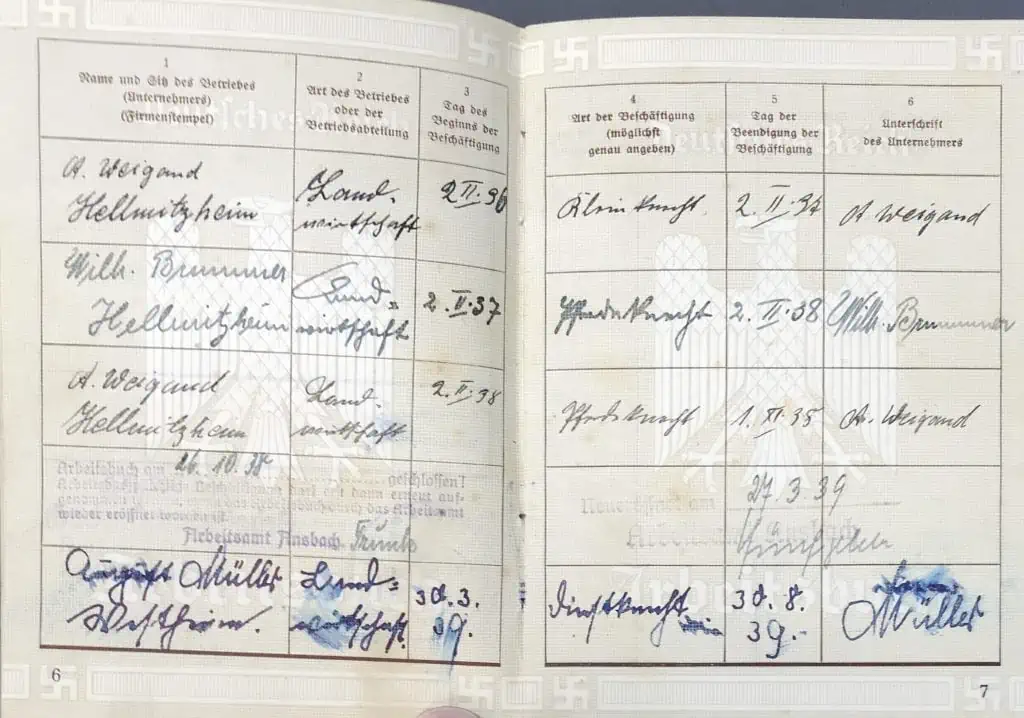 1
Name und Sitz des Betriebes
(Unternehmers)
(Firmenstempel)
2
Art des Betriebes
oder der
Betriebsabteilung
3
Tag des
Beginns der
Beschäftigung
A. Weigand
Hellmitzheim
Land-
wirtschaft
2 II. 36
Wilh. Brummer
Hellmitzheim
Land=
wirtschaft
2. II. 37
A. Weigand
Hellmitzheim
Land-
wirtschaft
2. II. 38
26. 10. 38
Arbeitsbuch am geschlossen!
wieder eröffnet worden ist.
Arbeitsamt Ansbach
August Müller
Westheim.
Land=
wirtschaft.
30. 3.
39.
6
4
Art der Beschäftigung
(möglichst
genau angeben)
5
Tag der
Beendigung der
Beschäftigung
6
Unterschrift
des Unternehmers
Kleinknecht.
2. II. 37
A Weigand
Pferdeknecht
2. II. 38
Wilh. Brummer
Pferdeknecht
1. XI. 38
A. Weigand
am
27. 3. 39
Ansbach
Dienstknecht
30. 8.
39.-
Müller
7